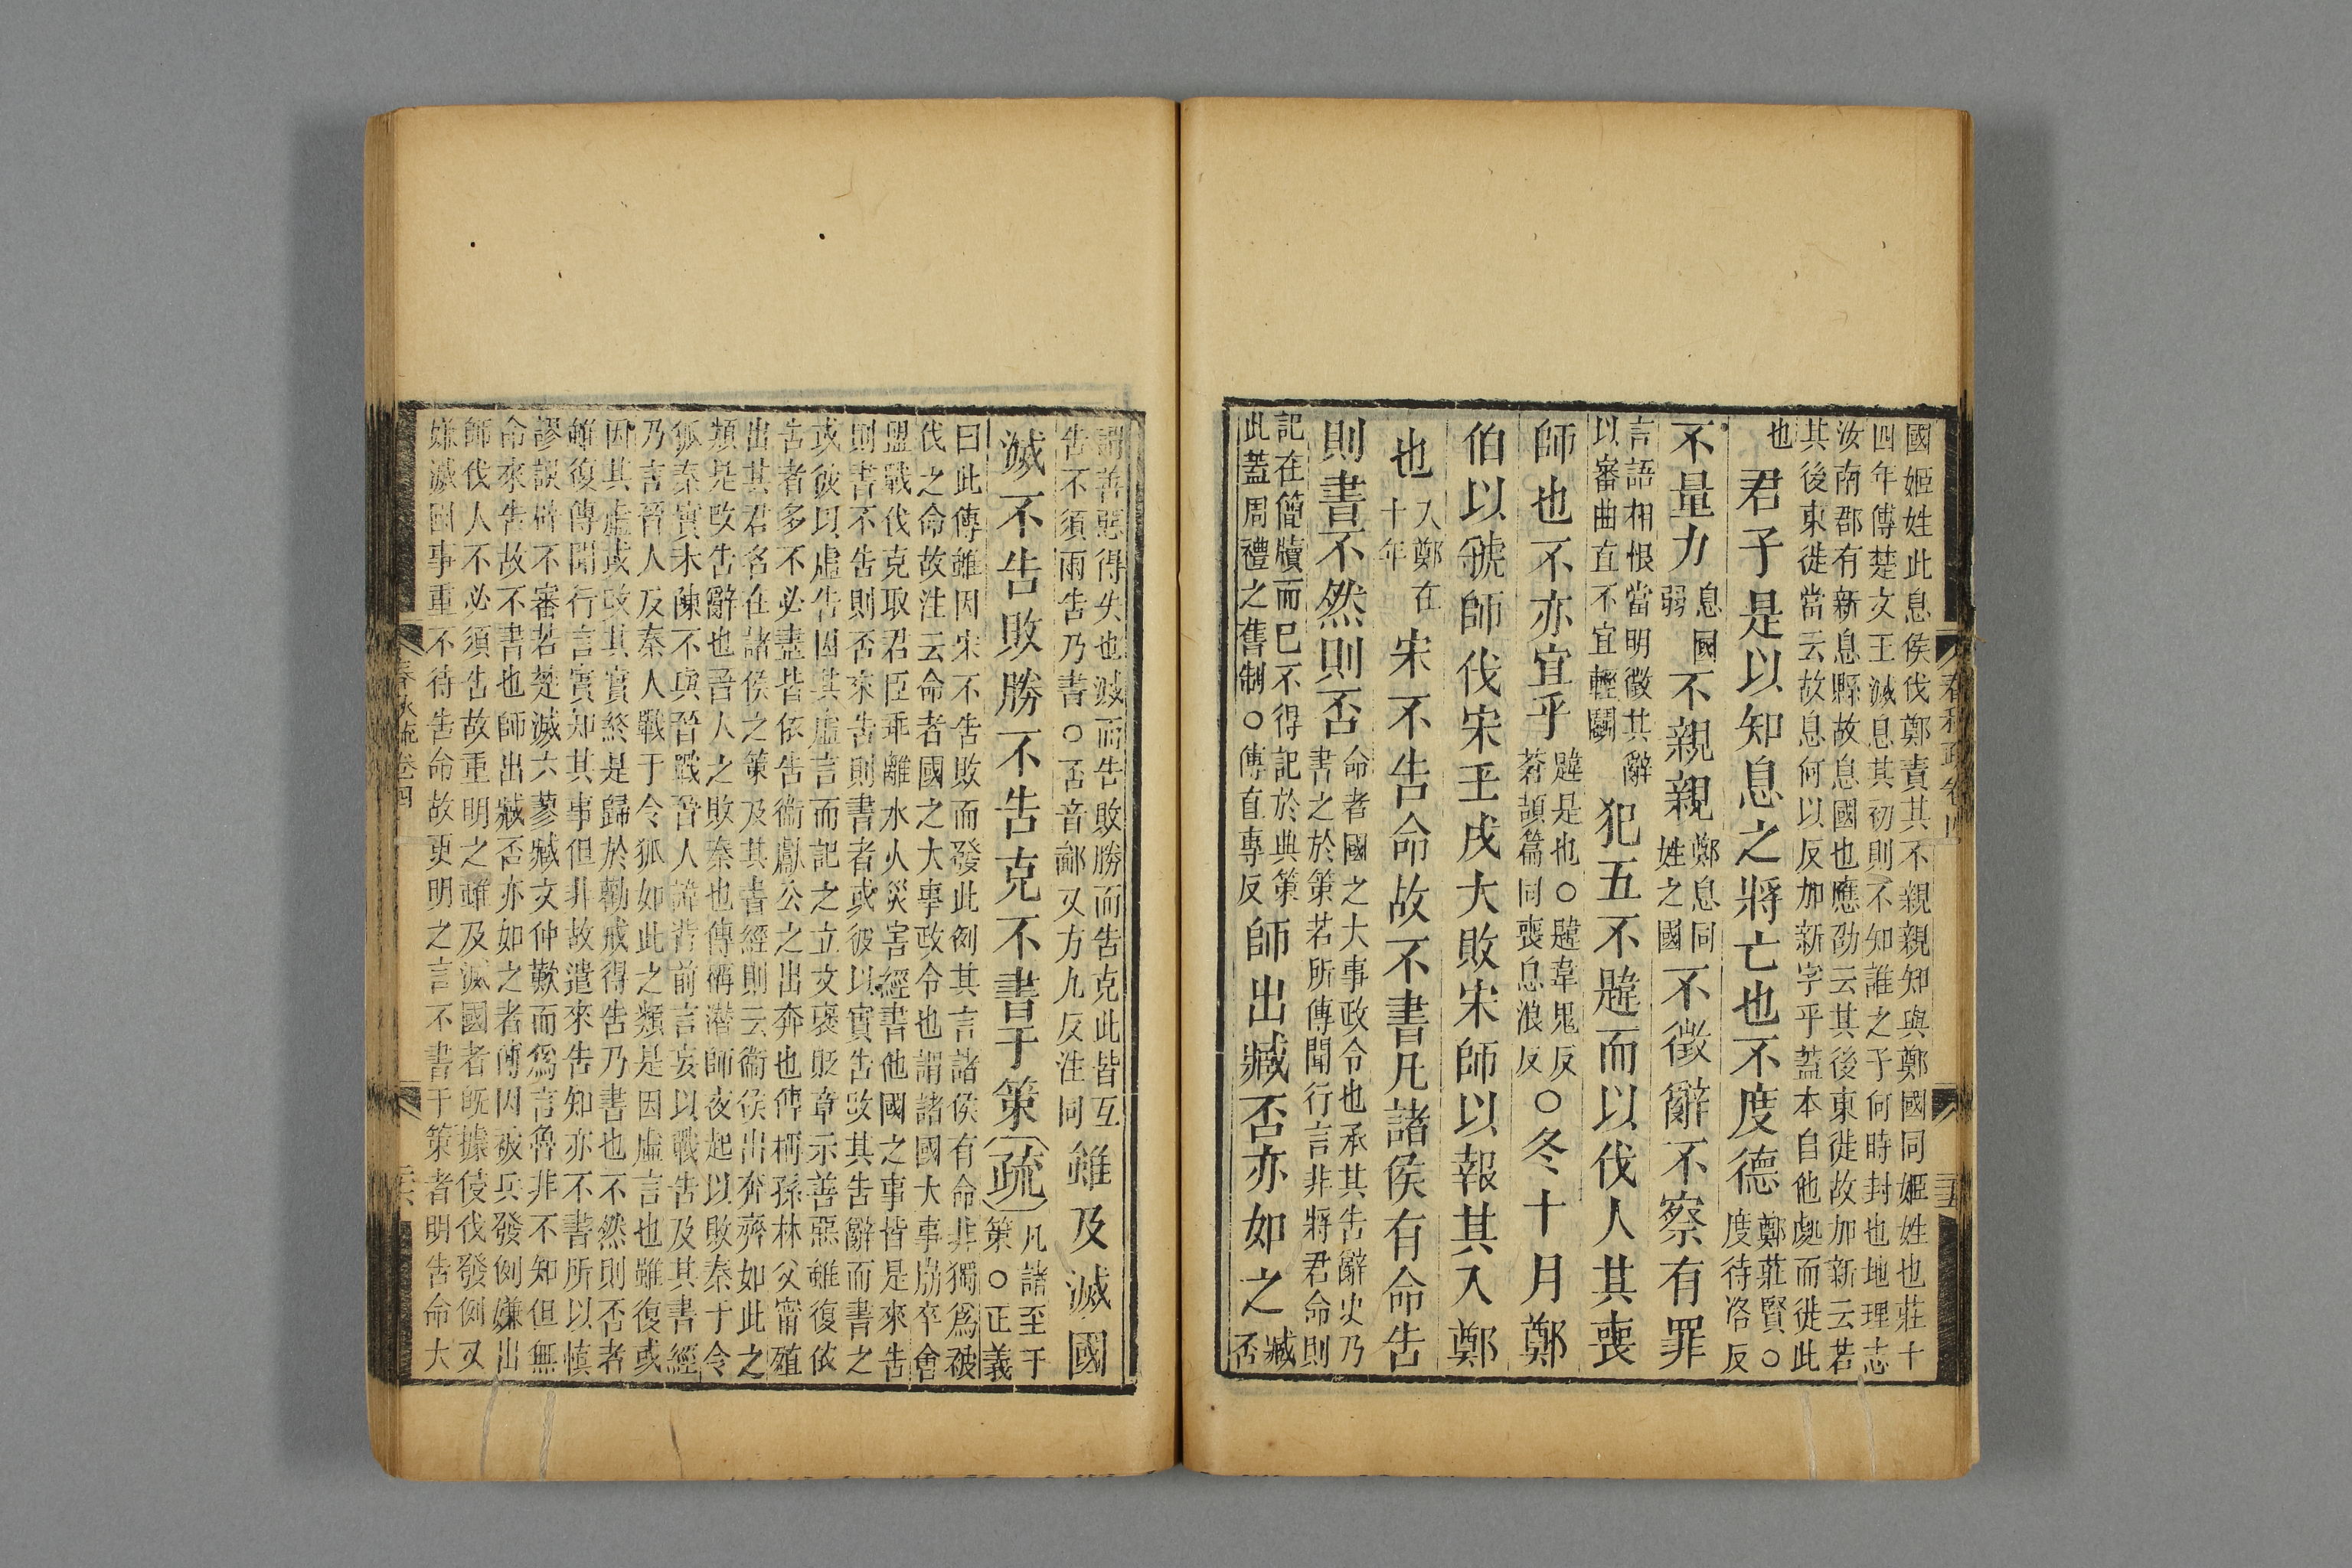 春秋疏卷四
國姬姓此息侯伐鄭責其不親親知與鄭國同姬姓也莊十
四年傳楚文王滅息其初則不知誰之子何時封也地理志
汝南郡有新息縣故息國也應劭云其後東徙故加新云若
其後東徙當云故息何以反加新字乎蓋本自他處而徙此
也君子是以知息之將亡也不度德鄭莊賢○度待洛反
不量力息國弱不親親鄭息同姓之國不徵辭不察有罪
言語相恨當明徵其辭以審曲直不宜輕鬭犯五不韙而以伐人其喪
師也不亦宜乎韙是也○韙韋鬼反蒼頡篇同喪息浪反○冬十月鄭
伯以虢師伐宋壬戌大敗宋師以報其入鄭
也入鄭在十年宋不告命故不書凡諸侯有命告
則書不然則否命者國之大事政令也承其告辭史乃書之於策若所傳聞行言非將君命則
記在簡牘而已不得記於典策此蓋周禮之舊制○傳直專反師出臧否亦如之臧否
謂善惡得失也滅而告敗勝而告克此皆互告不須兩告乃書○否音鄙又方九反注同雖及滅國
滅不告敗勝不告克不書于策疏凡諸至于策○正義
曰此傳雖因宋不告敗而發此例其言諸侯有命非獨爲被
伐之命故注云命者國之大事政令也謂諸國大事崩卒會
盟戰伐克取君臣乖離水火災害經書他國之事皆是來告
則書不告則否來告則書者或彼以實告改其告辭而書之
或彼以虛告因其虛言而記之立文褒貶章示善惡雖復依
告者多不必盡皆依告衞獻公之出奔也傳稱孫林父甯殖
出其君名在諸侯之策及其書經則云衞侯出奔齊如此之
類是改告辭也晉人之敗秦也傳稱潛師夜起以敗秦于令
狐秦實未陳不與晉戰晉人諱背前言妄以戰告及其書經
乃言晉人及秦人戰于令狐如此之類是因虛言也雖復或
因其虛或改其實終是歸於勸戒得告乃書也不然則否者
雖復傳聞行言實知其事但非故遣來告知亦不書所以慎
謬誤辟不審若楚滅六蓼臧文仲歎而爲言魯非不知但無
命來告故不書也師出臧否亦如之者傳因被兵發例嫌出
師伐人不必須告故重明之雖及滅國者旣據侵伐發例又
嫌滅國事重不待告命故更明之言不書于策者明告命大
春秋疏卷四